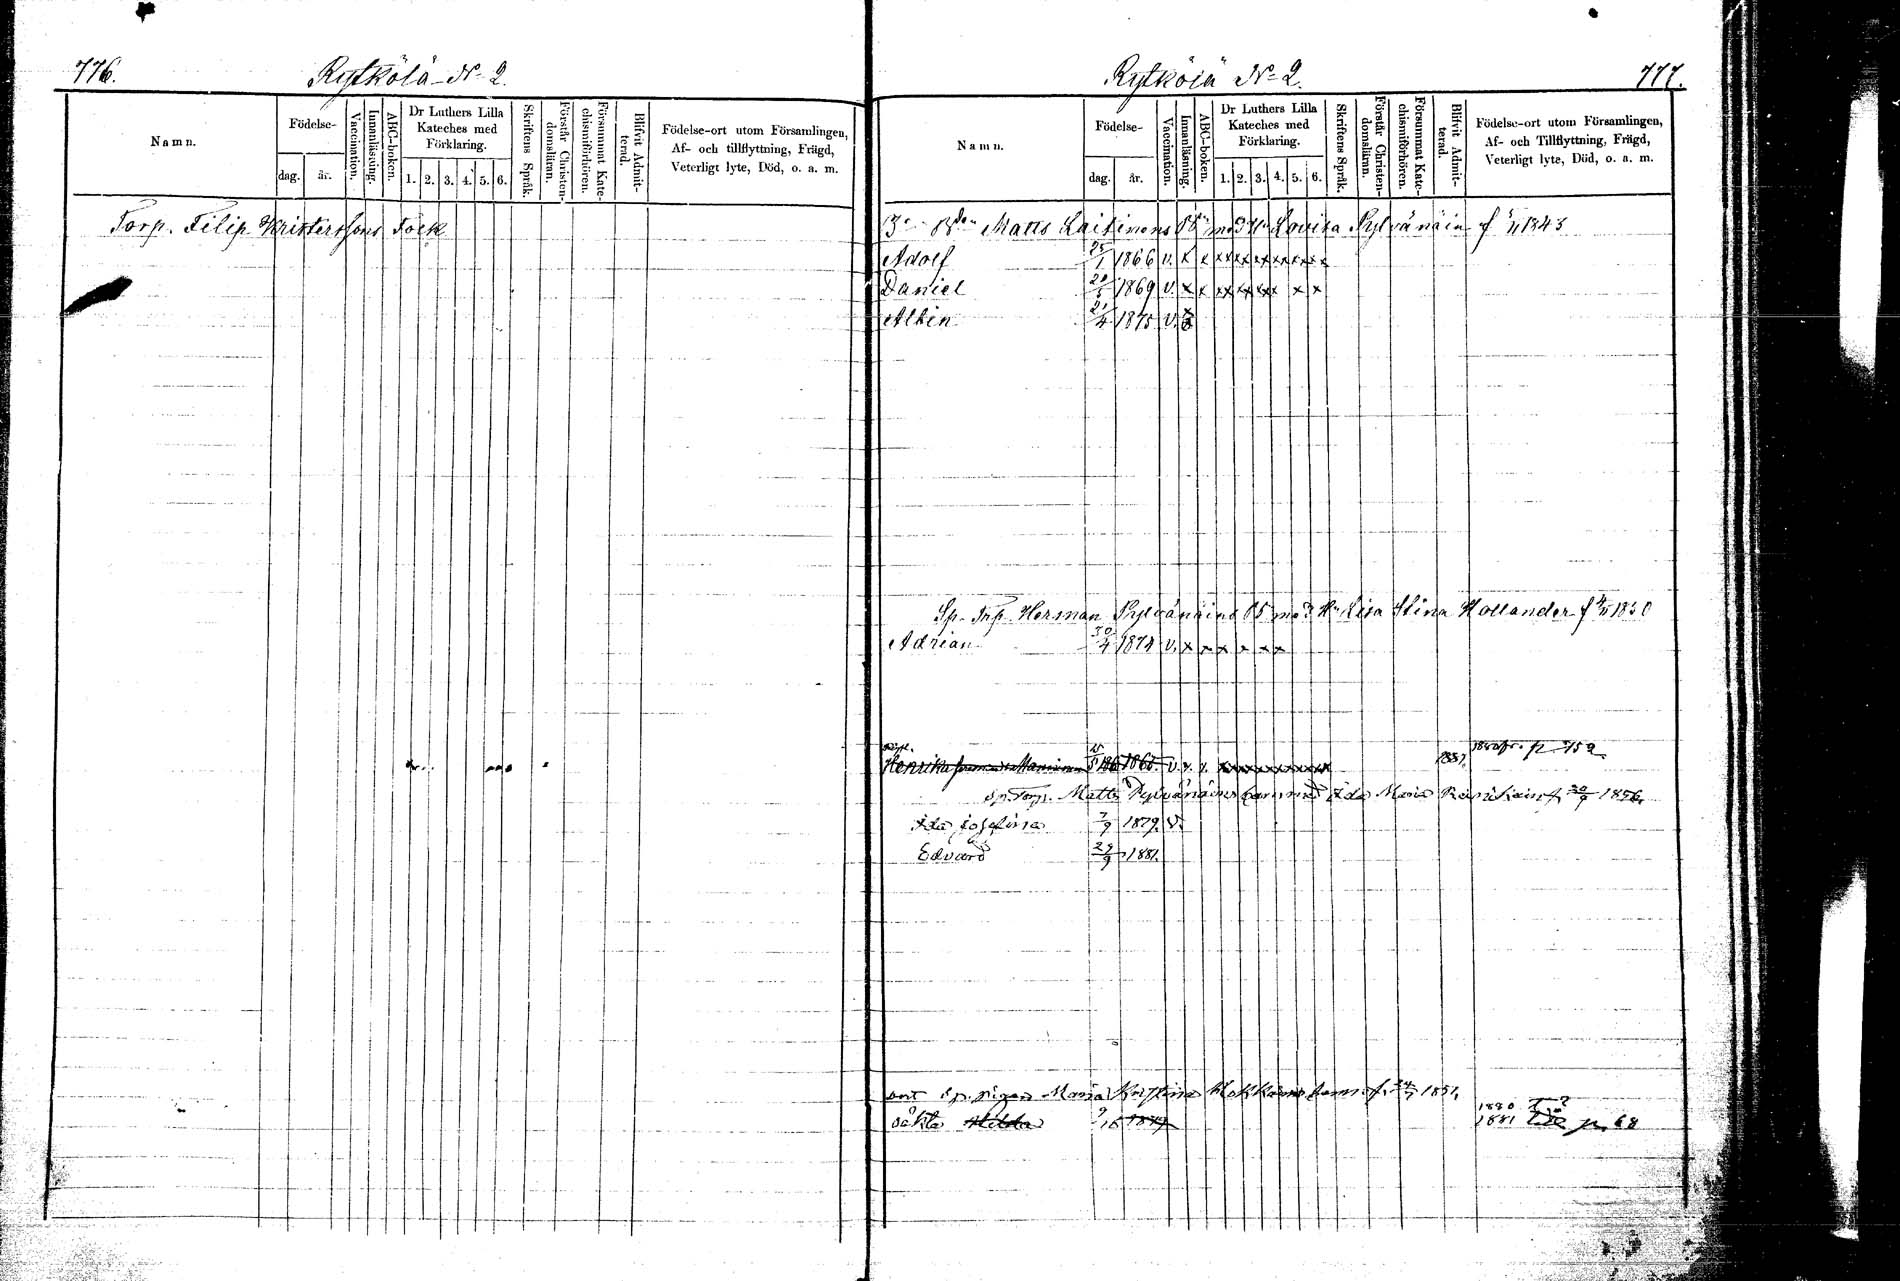 776.
Rytkölä № 2.
Namn.
Födelse-
dag.
år.
Vaccination.
Innanläsning.
ABC-boken.
Dr Luthers Lilla
Kateches med
Förklaring.
1. 2. 3. 4. 5. 6.
Skriftens Språk.
Förstår Christen-
domsläran.
Försummat Kate-
chismiförhören.
Blifvit Admit-
terad.
Födelse-ort utom Församlingen,
Af- och tillflyttning, Frägd,
Veterligt lyte, Död, o. a. m.
Torp. Filip Kristerssons Folk
Rytkölä № 2.
777.
Namn.
Födelse-
dag.
år.
Vaccination.
Innanläsning.
ABC-boken.
Dr Luthers Lilla
Kateches med
Förklaring.
1. 2. 3. 4. 5. 6.
Skriftens Språk.
Förstår Christen-
domsläran.
Försummat Kate-
chismiförhören.
Blifvit Admit-
terad.
Födelse-ort utom Församlingen,
Af- och Tillflyttning, Frägd,
Veterligt lyte, Död, o. a. m.
Matts Laitinens med Lovisa Pylvänäin f 1843
Adolf 25/1 1866 v. x x xx xx xx xx xx xx
Daniel 20/5 1869 v. x x xx xx xx x x
Albin 21/4 1875 v. x
Sp. Torp. Herman Pylvänäins med Hu Lisa Stina Hollander f 4/11 1830
Adrian 30/4 1874 v. x x x x x x
Henrika 1865 v. x x 1881.
Sp. Torp. Matts Pylvänäins barn med Ida Maria f. 30/9 1856.
Ida Josefina 7/9 1879. v.
Edvard 29/9 1881.
Sp. pigan Maria Kristina barn f. 24/7 1851.
o äkta Hilda 1880
1881 p. 68